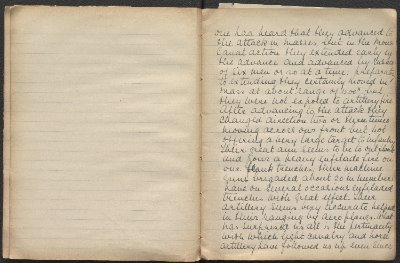 one has heard that they advanced to
the attack in masses but in the Mons
Canal action they extended early in
the advance and advanced by rushes
of six men or so at a time, preparatory
to extending they certainly moved in
mass at about range of but
they were not exposed to artillery fire
After advancing to the attack they
changed direction two or three times
moving across our front but not
offering a very large target to infantry
Their great aim seems to be to out
and pour a heavy enfilade fire on
our trenches. Their machine
guns brigaded about 20 in number
have on several occasions enfiladed
trenches with great effect. Their
artillery seems very accurate helped
in their ranging by aeroplanes. What
has surprised us all is the pertinacity
with which light cavalry and horse
artillery have followed us up even since